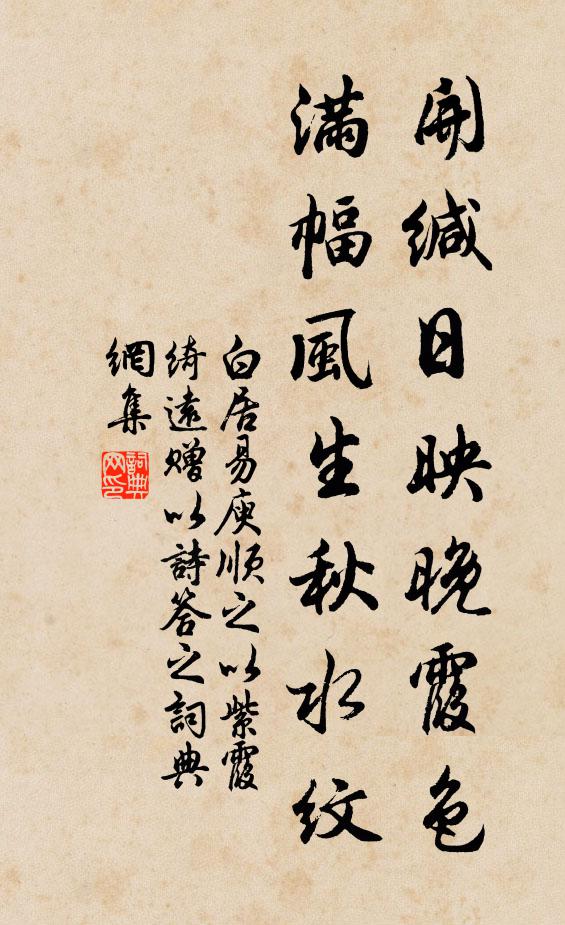 開緘日映晚霞色
滿幅風生秋水紋
白居易庾順之以紫霞
綺遠贈以詩答之詞典
網集
詞典
网印